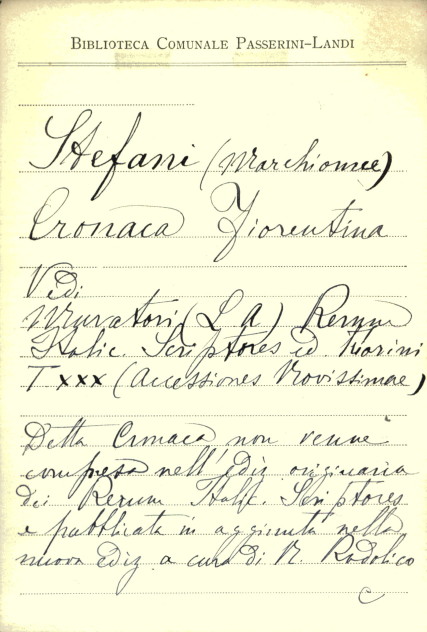 BIBLIOTECA COMUNALE PASSERINI–LANDI
Stefani (Marchionne)
Cronaca Fiorentina
Vedi
Muratori (L A) Rerum
Italic. Scriptores ed. Fiorini
T XXX (Accessiones Novissimae)
Detta Cronaca non venne
compresa nell'ediz originaria
dei Rerum Italic. Scriptores
e pubblicata in aggiunta nella
nuova ediz a cura di N. Rodolico